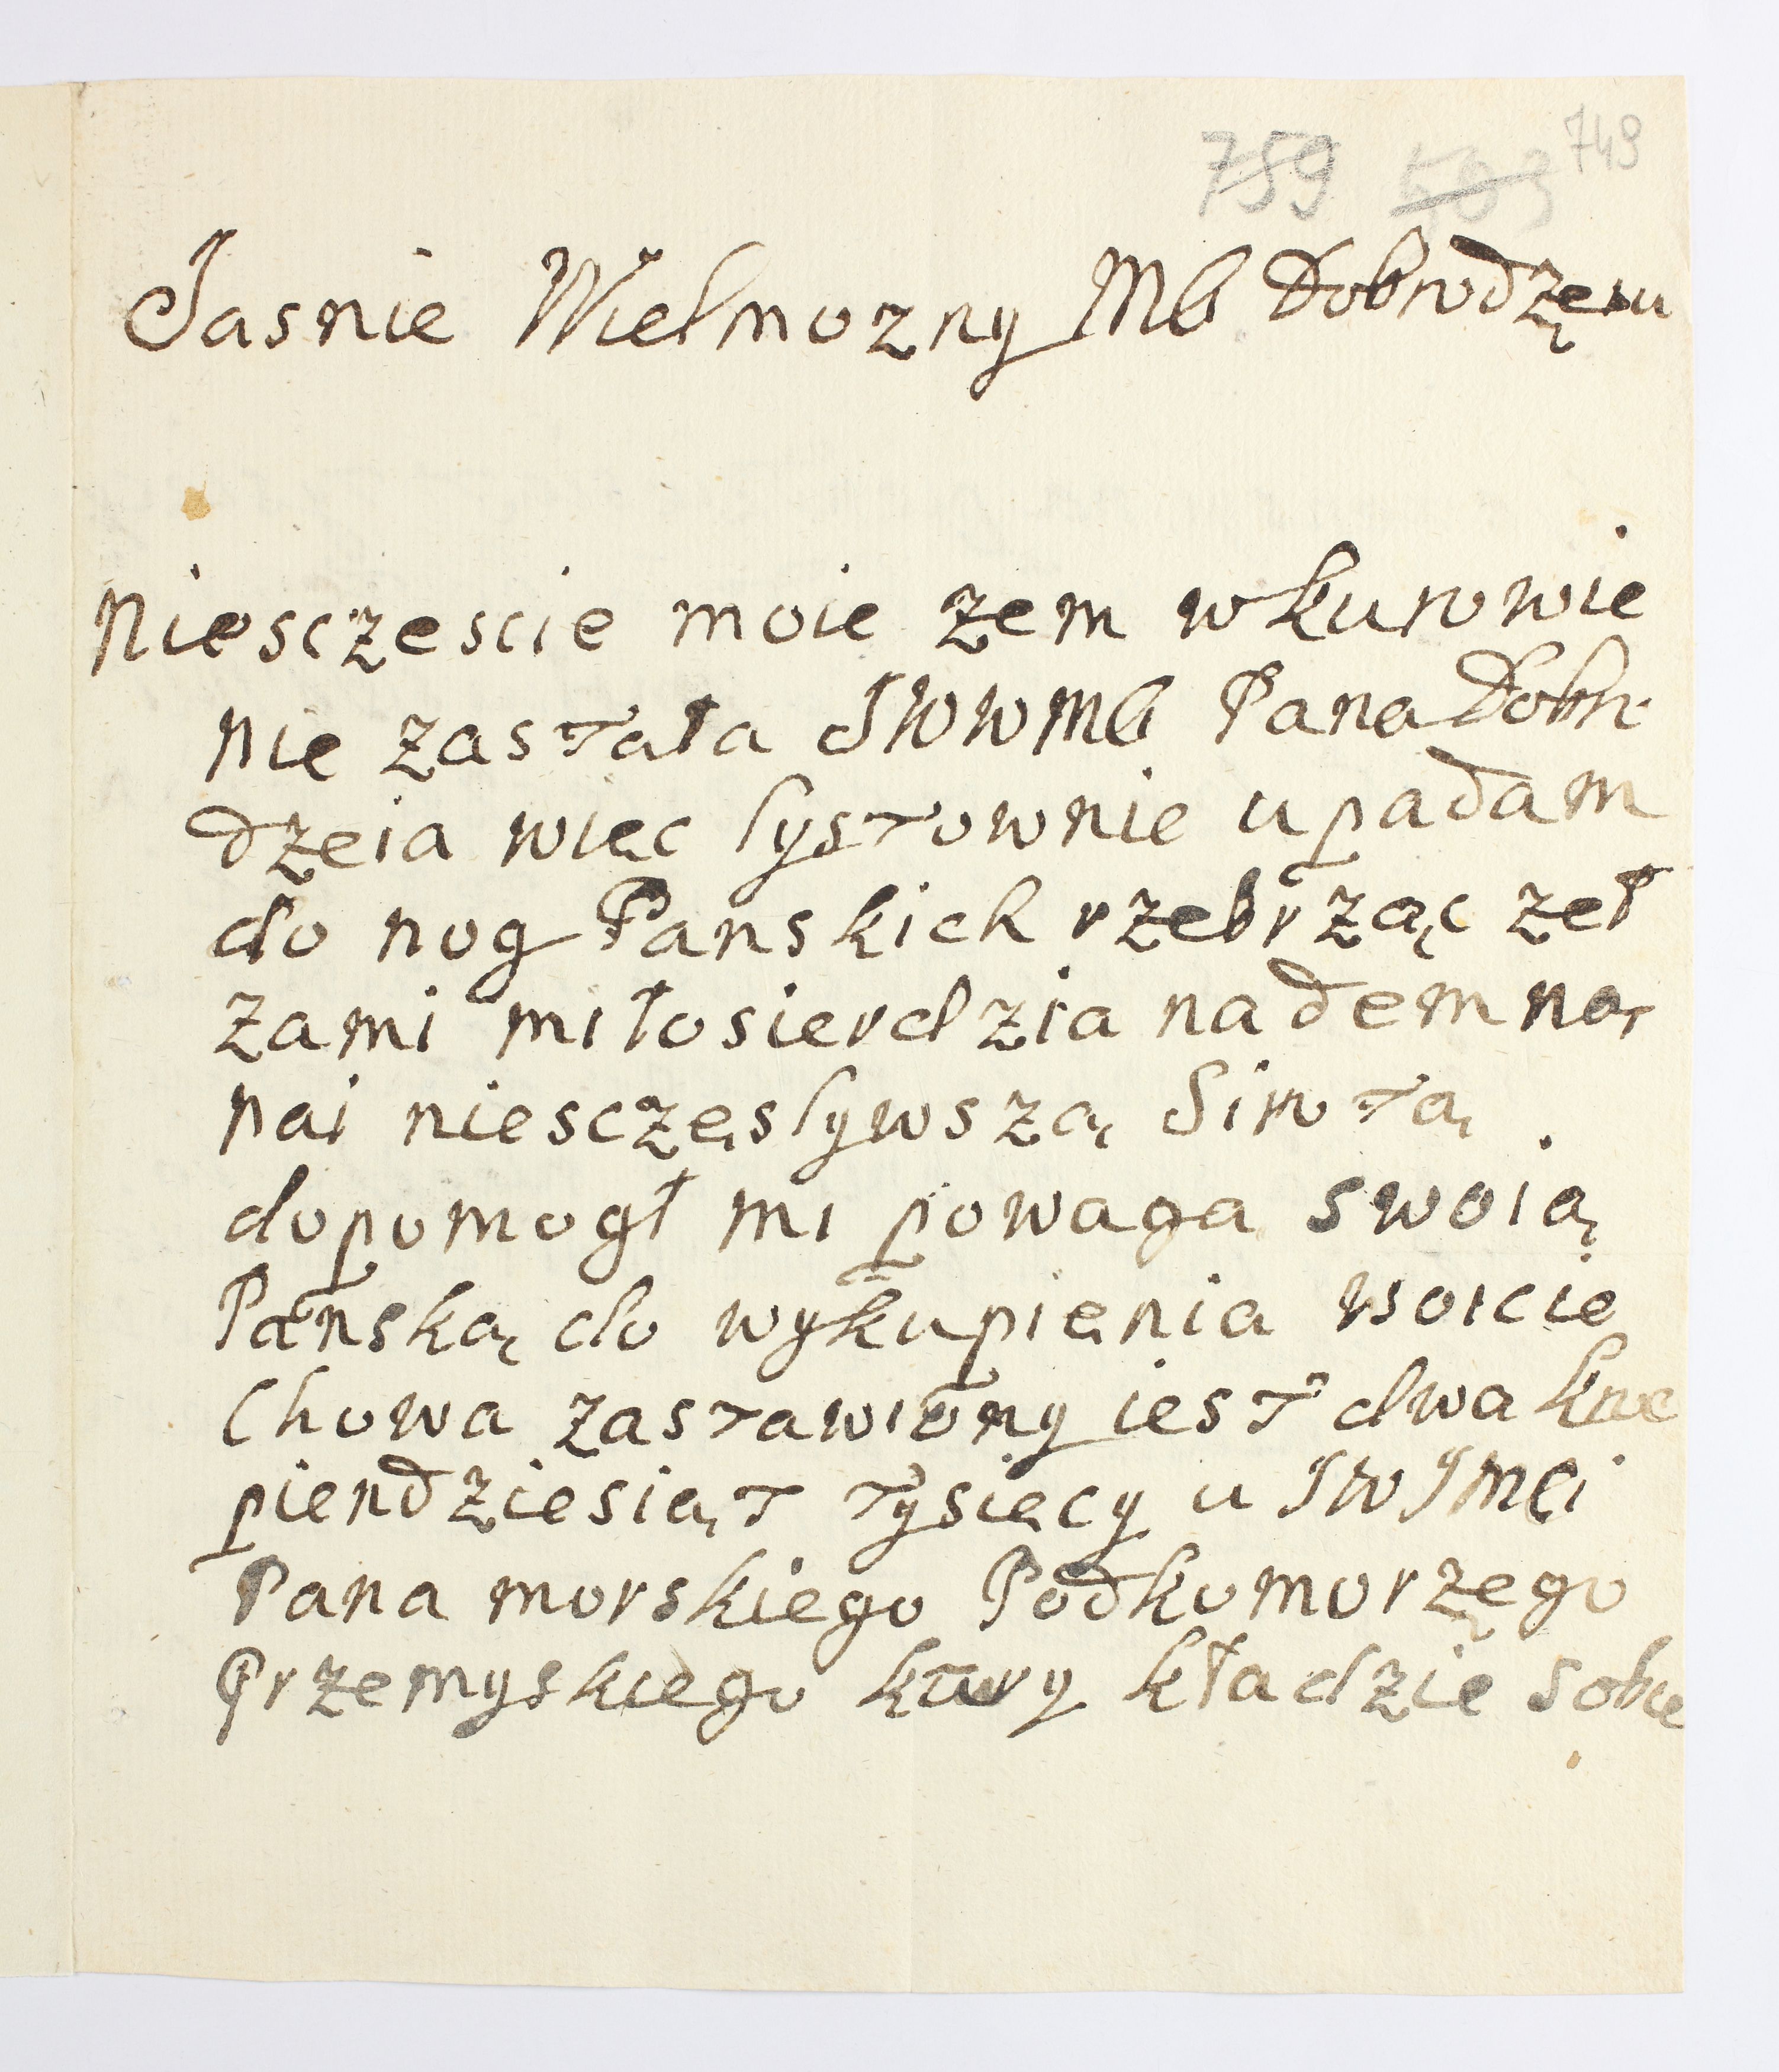 759 749
Jasnie Wielmozny Mb Dobrodzęiu
Niesczescie moie zem w kurowie
nie zastała JWWMb Pana Dobr
dzeia więc lystownie upadam
do nog Panskich rzebrząc zeł
zami miłosierdzia nademną
nai niesczęslywszą Sirotą
dopomogł mi powaga swoią
Panską do wykupięnia woicie
chowa zastawiony iest dwa kroc
piendziesiąt tysięcy u JWJMCi
Pana morskiego Podkomorzęgo
Przemyskiego ktury kładzie sobie